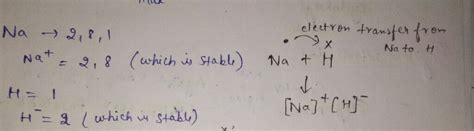 Na → 2,8,1
Na⁺ = 2,8 (which is stable)
H = 1
H⁻ = 2 (which is stable)
electron transfer from
Na to H
Na + H
↓
[Na]⁺ [H]⁻